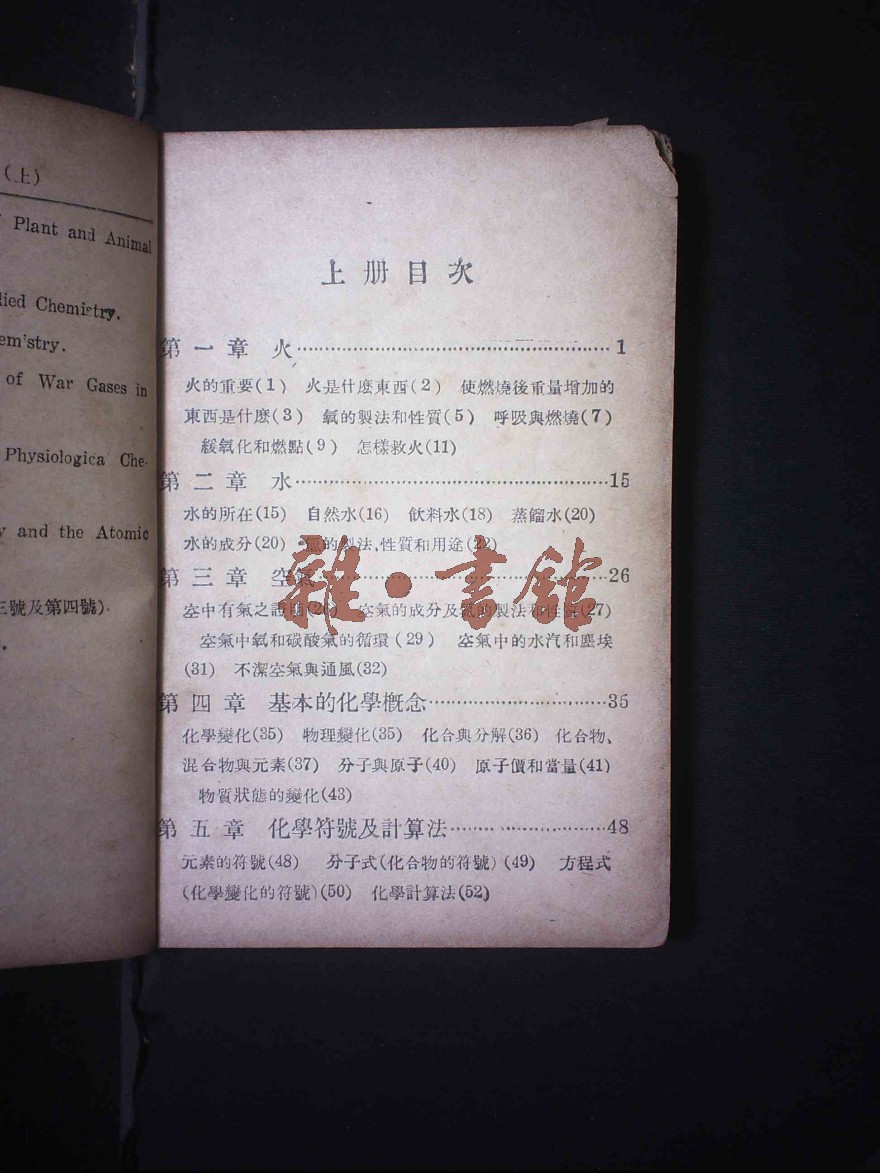 (上)
Plant and Animal
lied Chemistry.
em'stry.
of War Gases in
Physiologica Che-
y and the Atomic
三號及第四號).
上册目次
第一章 火……1
火的重要(1) 火是什麽東西(2) 使燃燒後重量增加的
東西是什麽(3) 氧的製法和性質(5) 呼吸與燃燒(7)
緩氧化和燃點(9) 怎樣救火(11)
第二章 水……15
水的所在(15) 自然水(16) 飮料水(18) 蒸餾水(20)
水的成分(20) 的製法,性質和用途(22)
第三章 空氣……26
空中有氣之證明(26) 空氣的成分及氮的製法和性質(27)
空氣中氧和碳酸氣的循環(29) 空氣中的水汽和塵埃
(31) 不潔空氣與通風(32)
第四章 基本的化學概念……35
化學變化(35) 物理變化(35) 化合與分解(36) 化合物、
混合物與元素(37) 分子與原子(40) 原子價和當量(41)
物質狀態的變化(43)
第五章 化學符號及計算法……48
元素的符號(48) 分子式(化合物的符號)(49) 方程式
(化學變化的符號)(50) 化學計算法(52)
雜·書館